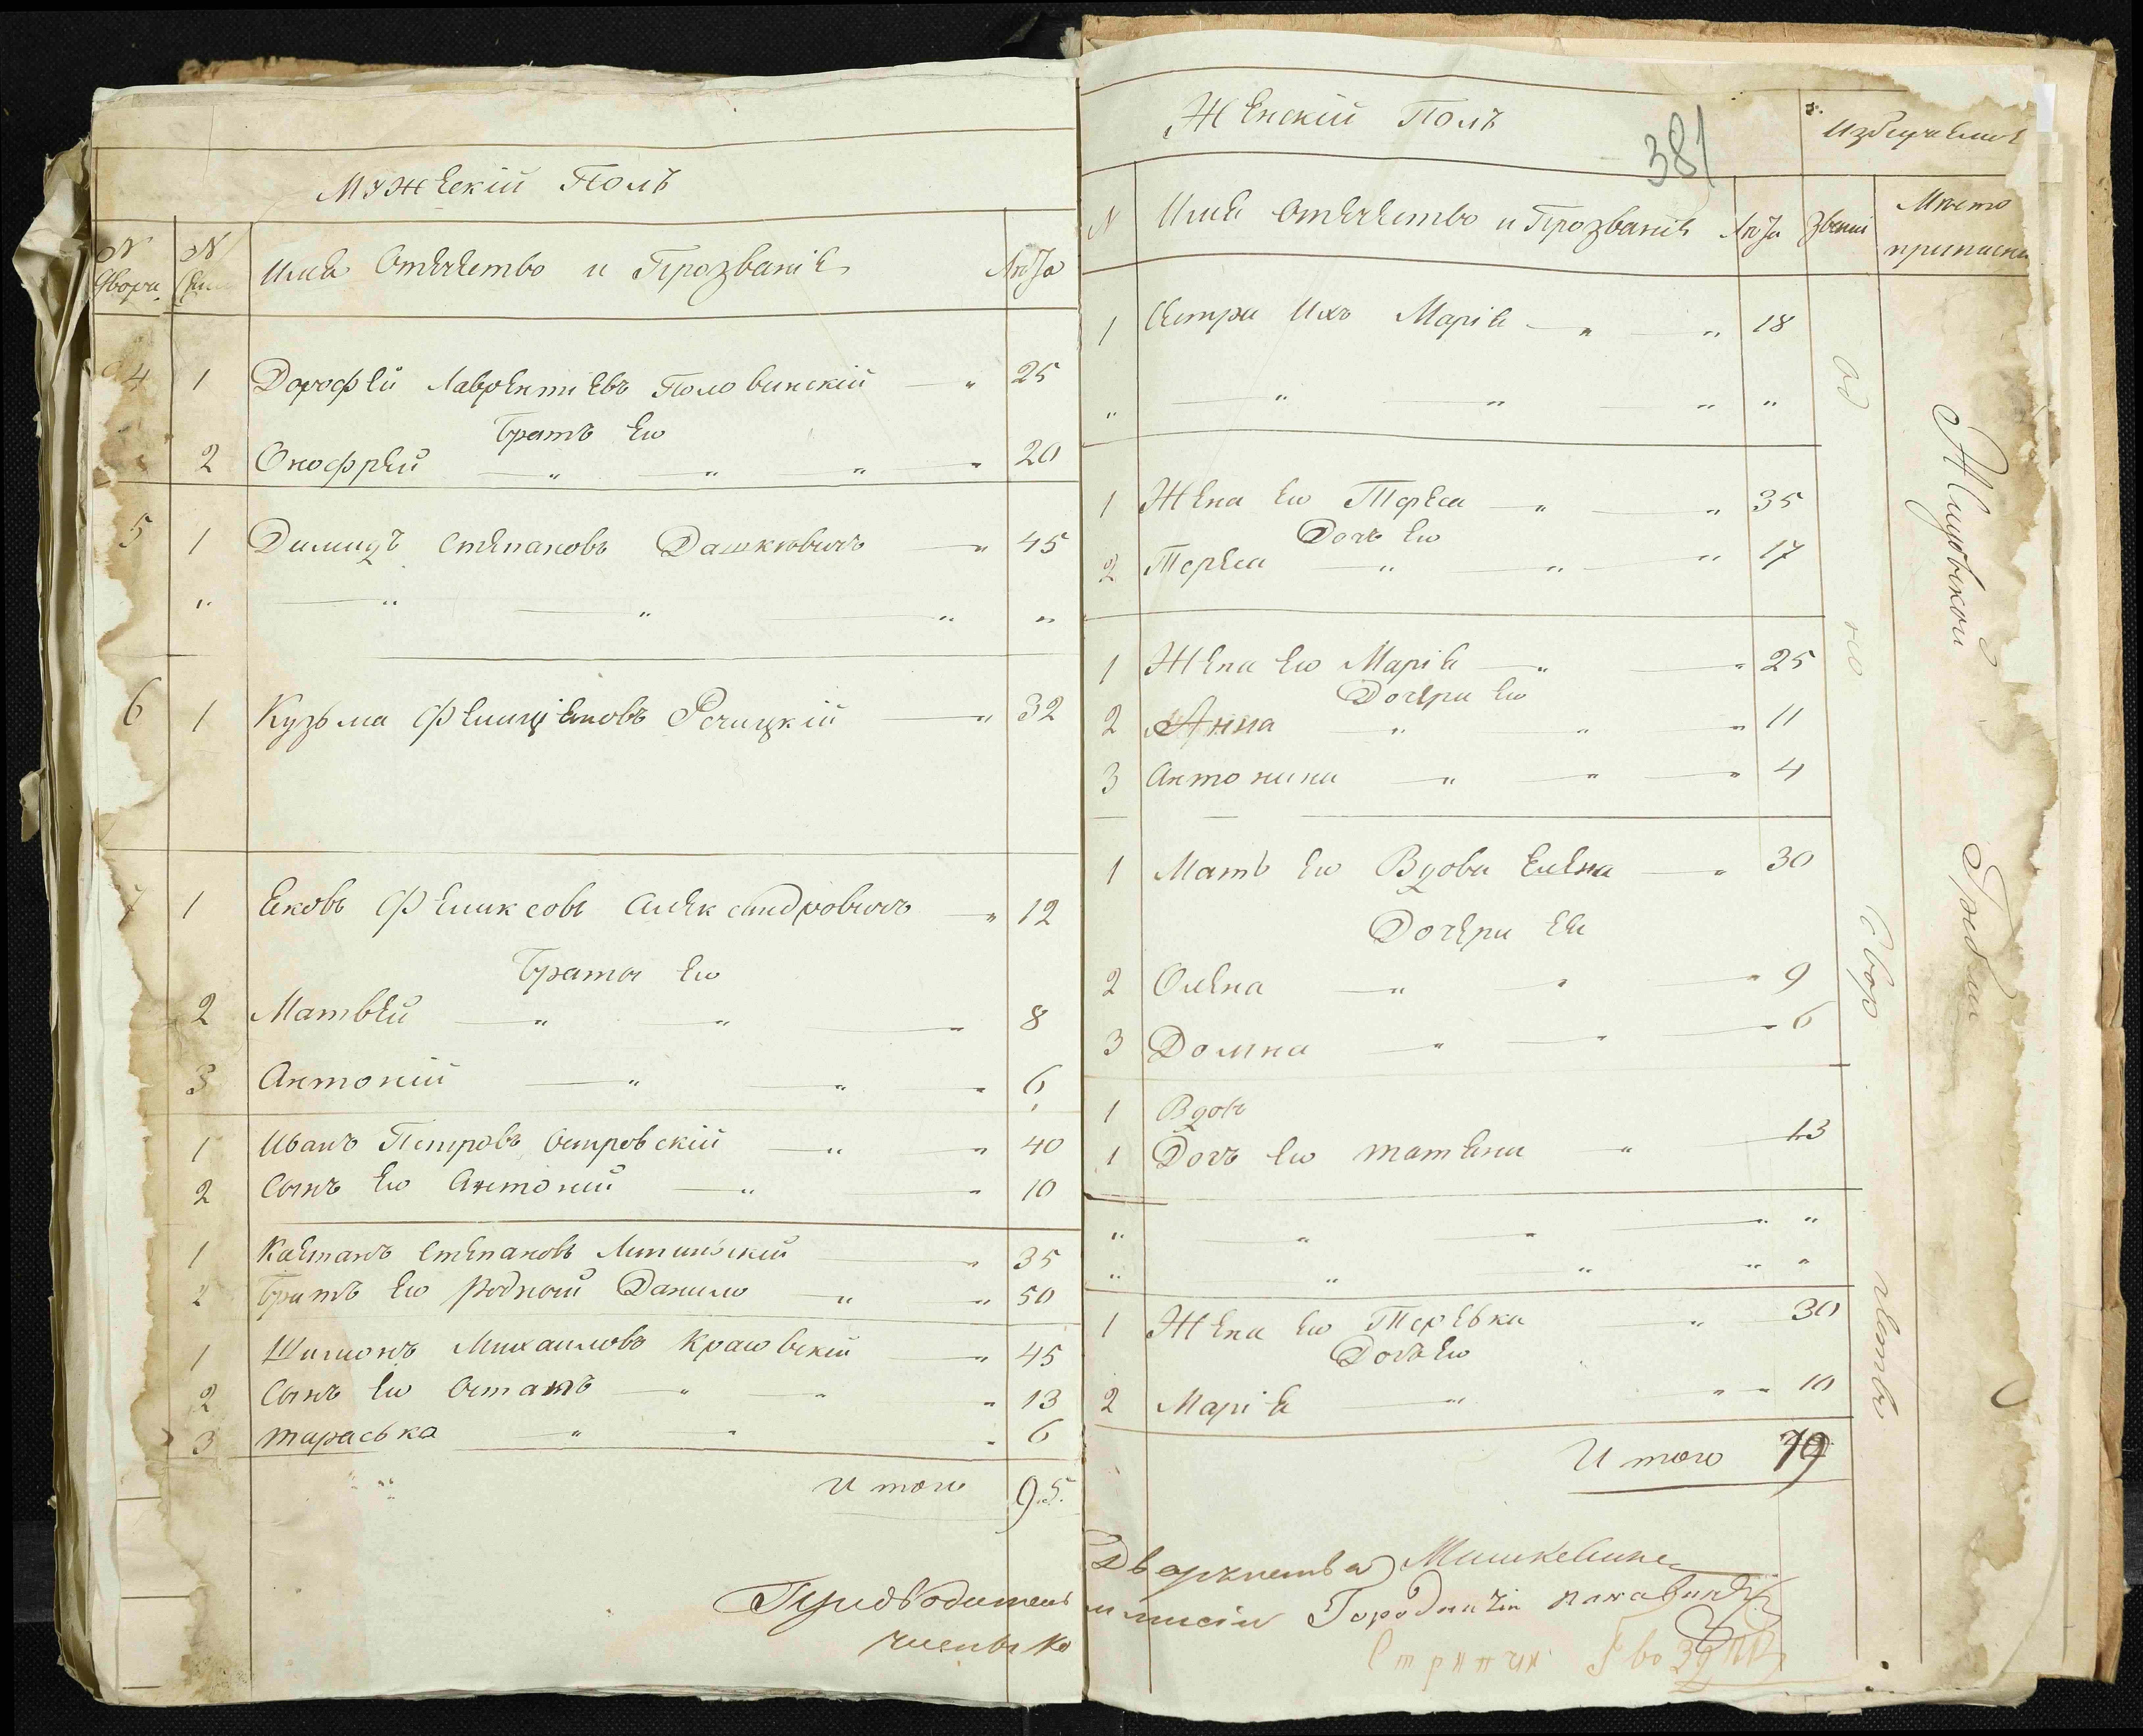 Мужескій Полъ
N Двора
N
Имя Отечество и Прозваніе
Лѣта
4 1 Дорофей Лаврентіевъ Половинскій — " 25
Братъ Его
2 Онофрей — " — " — " — " 20
5 1 Димидъ Степановъ Дашкѣвичъ — " 45
" — " — " — " "
6 1 Кузьма Фелиціановъ Речицкій — " 32
7 1 Яковъ Феликсовъ Александровичъ — " 12
Братья Его
2 Матвѣй — " — " — " 8
3 Антоній — " — " — " 6
1 Иванъ Петровъ Островскій — " — " 40
2 Сынъ Его Антоній — " — " 10
1 Каетанъ Степановъ Липинскій — " 35
2 Братъ Его Родной Данило — " — " 50
1 Шимонъ Михаиловъ Красовскій — " 45
2 Сынъ Его Остапъ — " — " — " 13
3 Тараська — " — " — " 6
Итого 95.
Предводитель
члены Ко
Женскій Полъ
381
N
Имя Отечество и Прозваніе
Лѣта
Званія
Мѣсто
приписки
1 Сестра Ихъ Марія — " — " 18
" — " — " — " "
1 Жена Его Тереса — " — " 35
Дочь Его
2 Тереса — " — " — " 17
1 Жена Его Марія — " — " 25
Дочери Его
2 Анна — " — " — " 11
3 Антонина — " — " — " 4
1 Мать Его Вдова Елена — " 30
Дочери Ея
2 Олена — " — " — " 9
3 Домна — " — " — " 6
1 Вдов
1 Дочь Его Татьяна — " — 13
" — " — " — " "
" — " — " — " "
1 Жена Его Теревка — " 30
Дочь Его
2 Марія — " — " — " 10
Итого 79
одно
дворчество
Дворянства Мишкевичь
мисіи Городничій
Стряпчій Гвозд